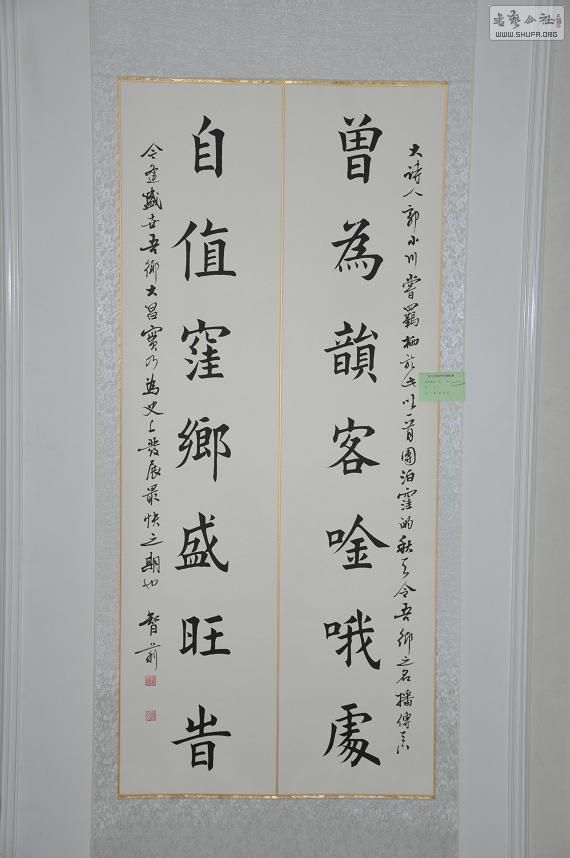 大诗人郭小川嘗羈栖於此以一首團泊窪的秋天令吾鄉之名播傳
曾為韻客唫哦處
自值窪鄉盛旺旹
今逢盛世吾鄉大昌實乃為史上發展最快之期也 智前
书艺公社
WWW.SHUFA.ORG